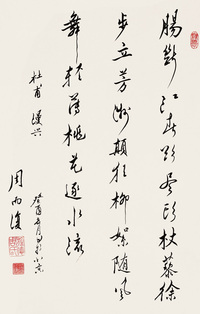 腸斷江春欲盡頭杖藜徐
步立芳洲顛狂柳絮隨風
舞輕薄桃花逐水流
杜甫 漫興
癸酉
周而復